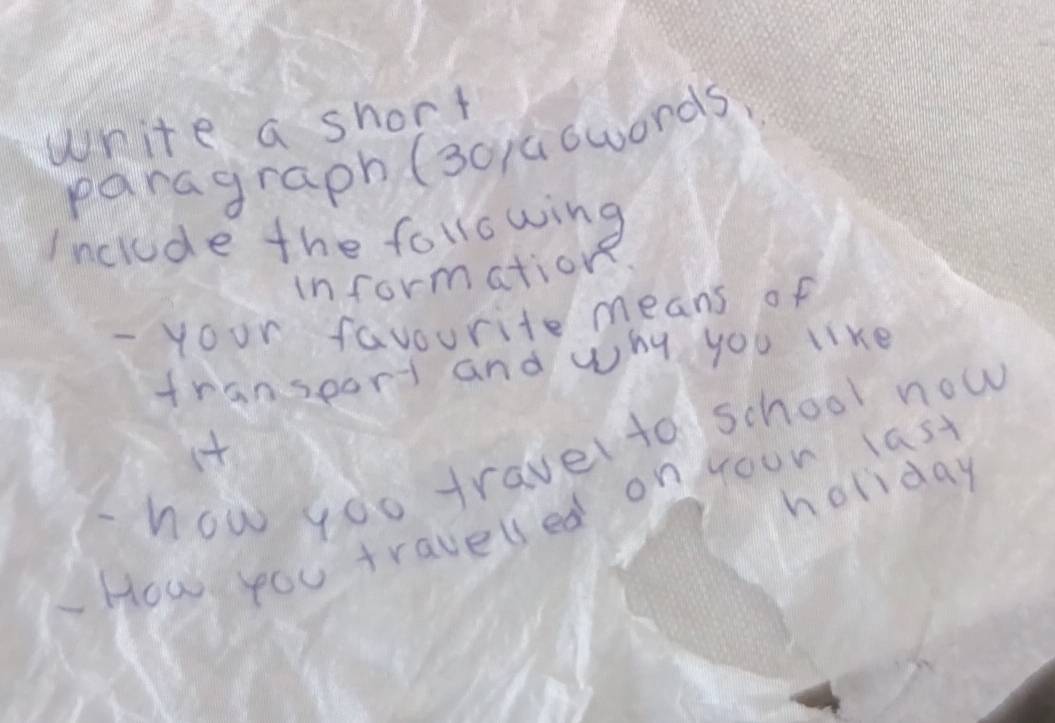 write a short
paragraph (30/40words,
Include the following
information.
- your favourite means of
transport and why you like
it
- how you travel to school now
- How you travelled on your last
holiday